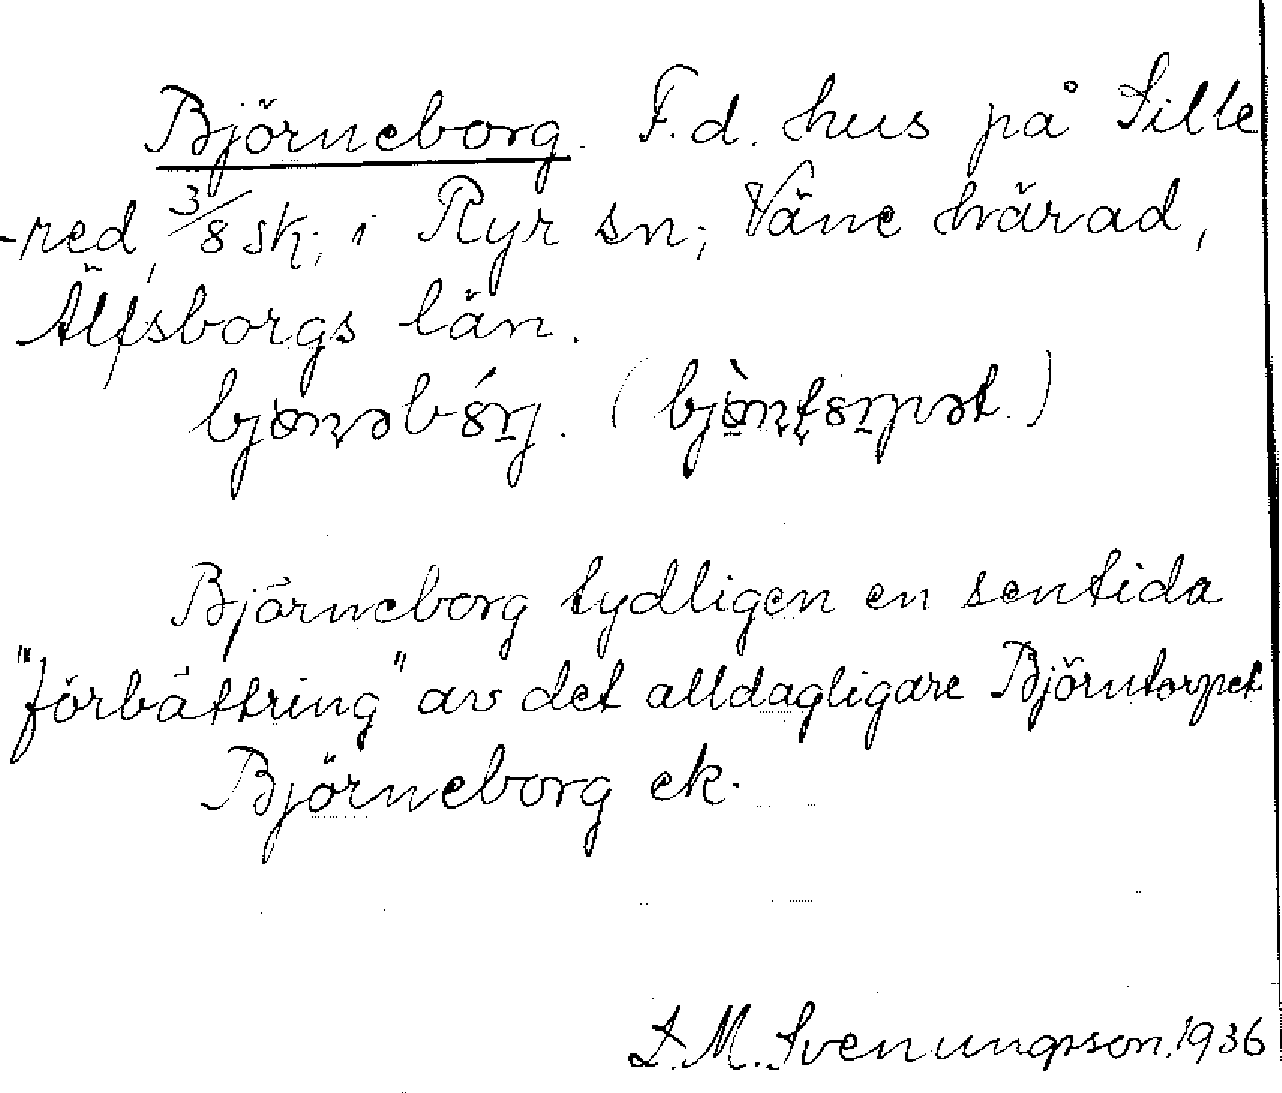 Björneborg. F.d. hus på Sille
-red, 3/8 sk; i Ryr sn; Väne härad,
Älfsborgs län.
Björneborg tydligen en sentida
"förbättring" av det alldagligare Björntorpet
Björneborg ek.
D. M. Svenungsson. 1936